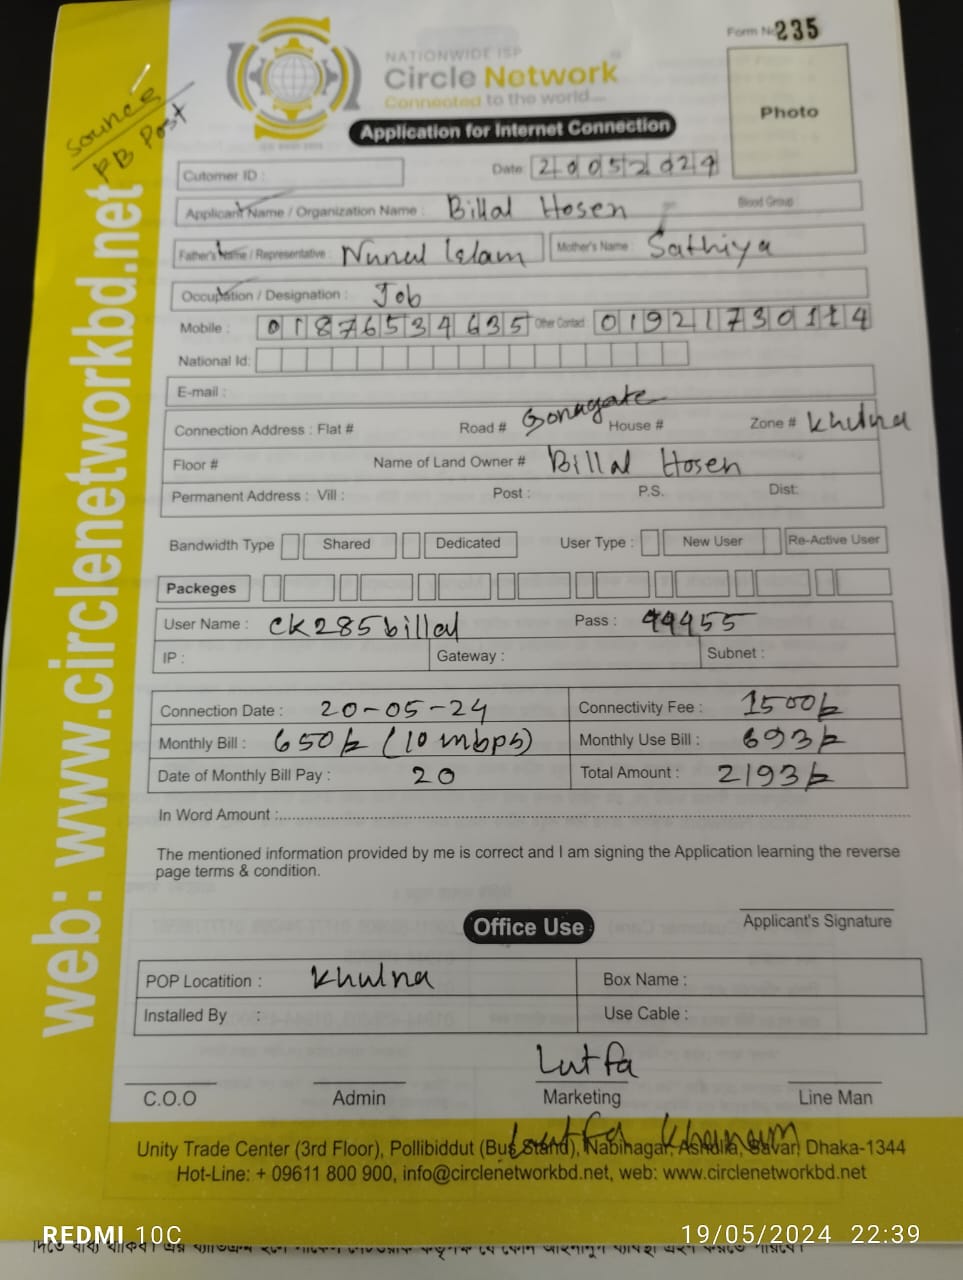 Form No 235
NATIONWIDE ISP
Circle Network
Connected to the world...
Application for Internet Connection
Photo
Source
PB Post
web: www.circlenetworkbd.net
Cutomer ID :
Date: 20052024
Applicant Name / Organization Name : Billal Hosen Blood Group:
Father's Name / Representative : Nurul Islam Mother's Name : Sathiya
Occupation / Designation : Job
Mobile : 01876534635 Other Contact 01921730114
National Id:
E-mail :
Connection Address : Flat # Road # Sonagate House # Zone # Khulna
Floor # Name of Land Owner # Billal Hosen
Permanent Address : Vill : Post : P.S. Dist:
Bandwidth Type Shared Dedicated User Type : New User Re-Active User
Packeges
User Name : CK285billal Pass : 44455
IP : Gateway : Subnet :
Connection Date : 20-05-24 Connectivity Fee : 1500/=
Monthly Bill : 650/= (10 mbps) Monthly Use Bill : 693/=
Date of Monthly Bill Pay : 20 Total Amount : 2193/=
In Word Amount :
The mentioned information provided by me is correct and I am signing the Application learning the reverse
page terms & condition.
Applicant's Signature
Office Use
POP Locatition : Khulna Box Name :
Installed By : Use Cable :
Lutfa
C.O.O Admin Marketing Line Man
Lutfa Khanam
Unity Trade Center (3rd Floor), Pollibiddut (Bus Stand), Nabinagar, Ashulia, Savar, Dhaka-1344
Hot-Line: + 09611 800 900, info@circlenetworkbd.net, web: www.circlenetworkbd.net
REDMI 10C 19/05/2024 22:39